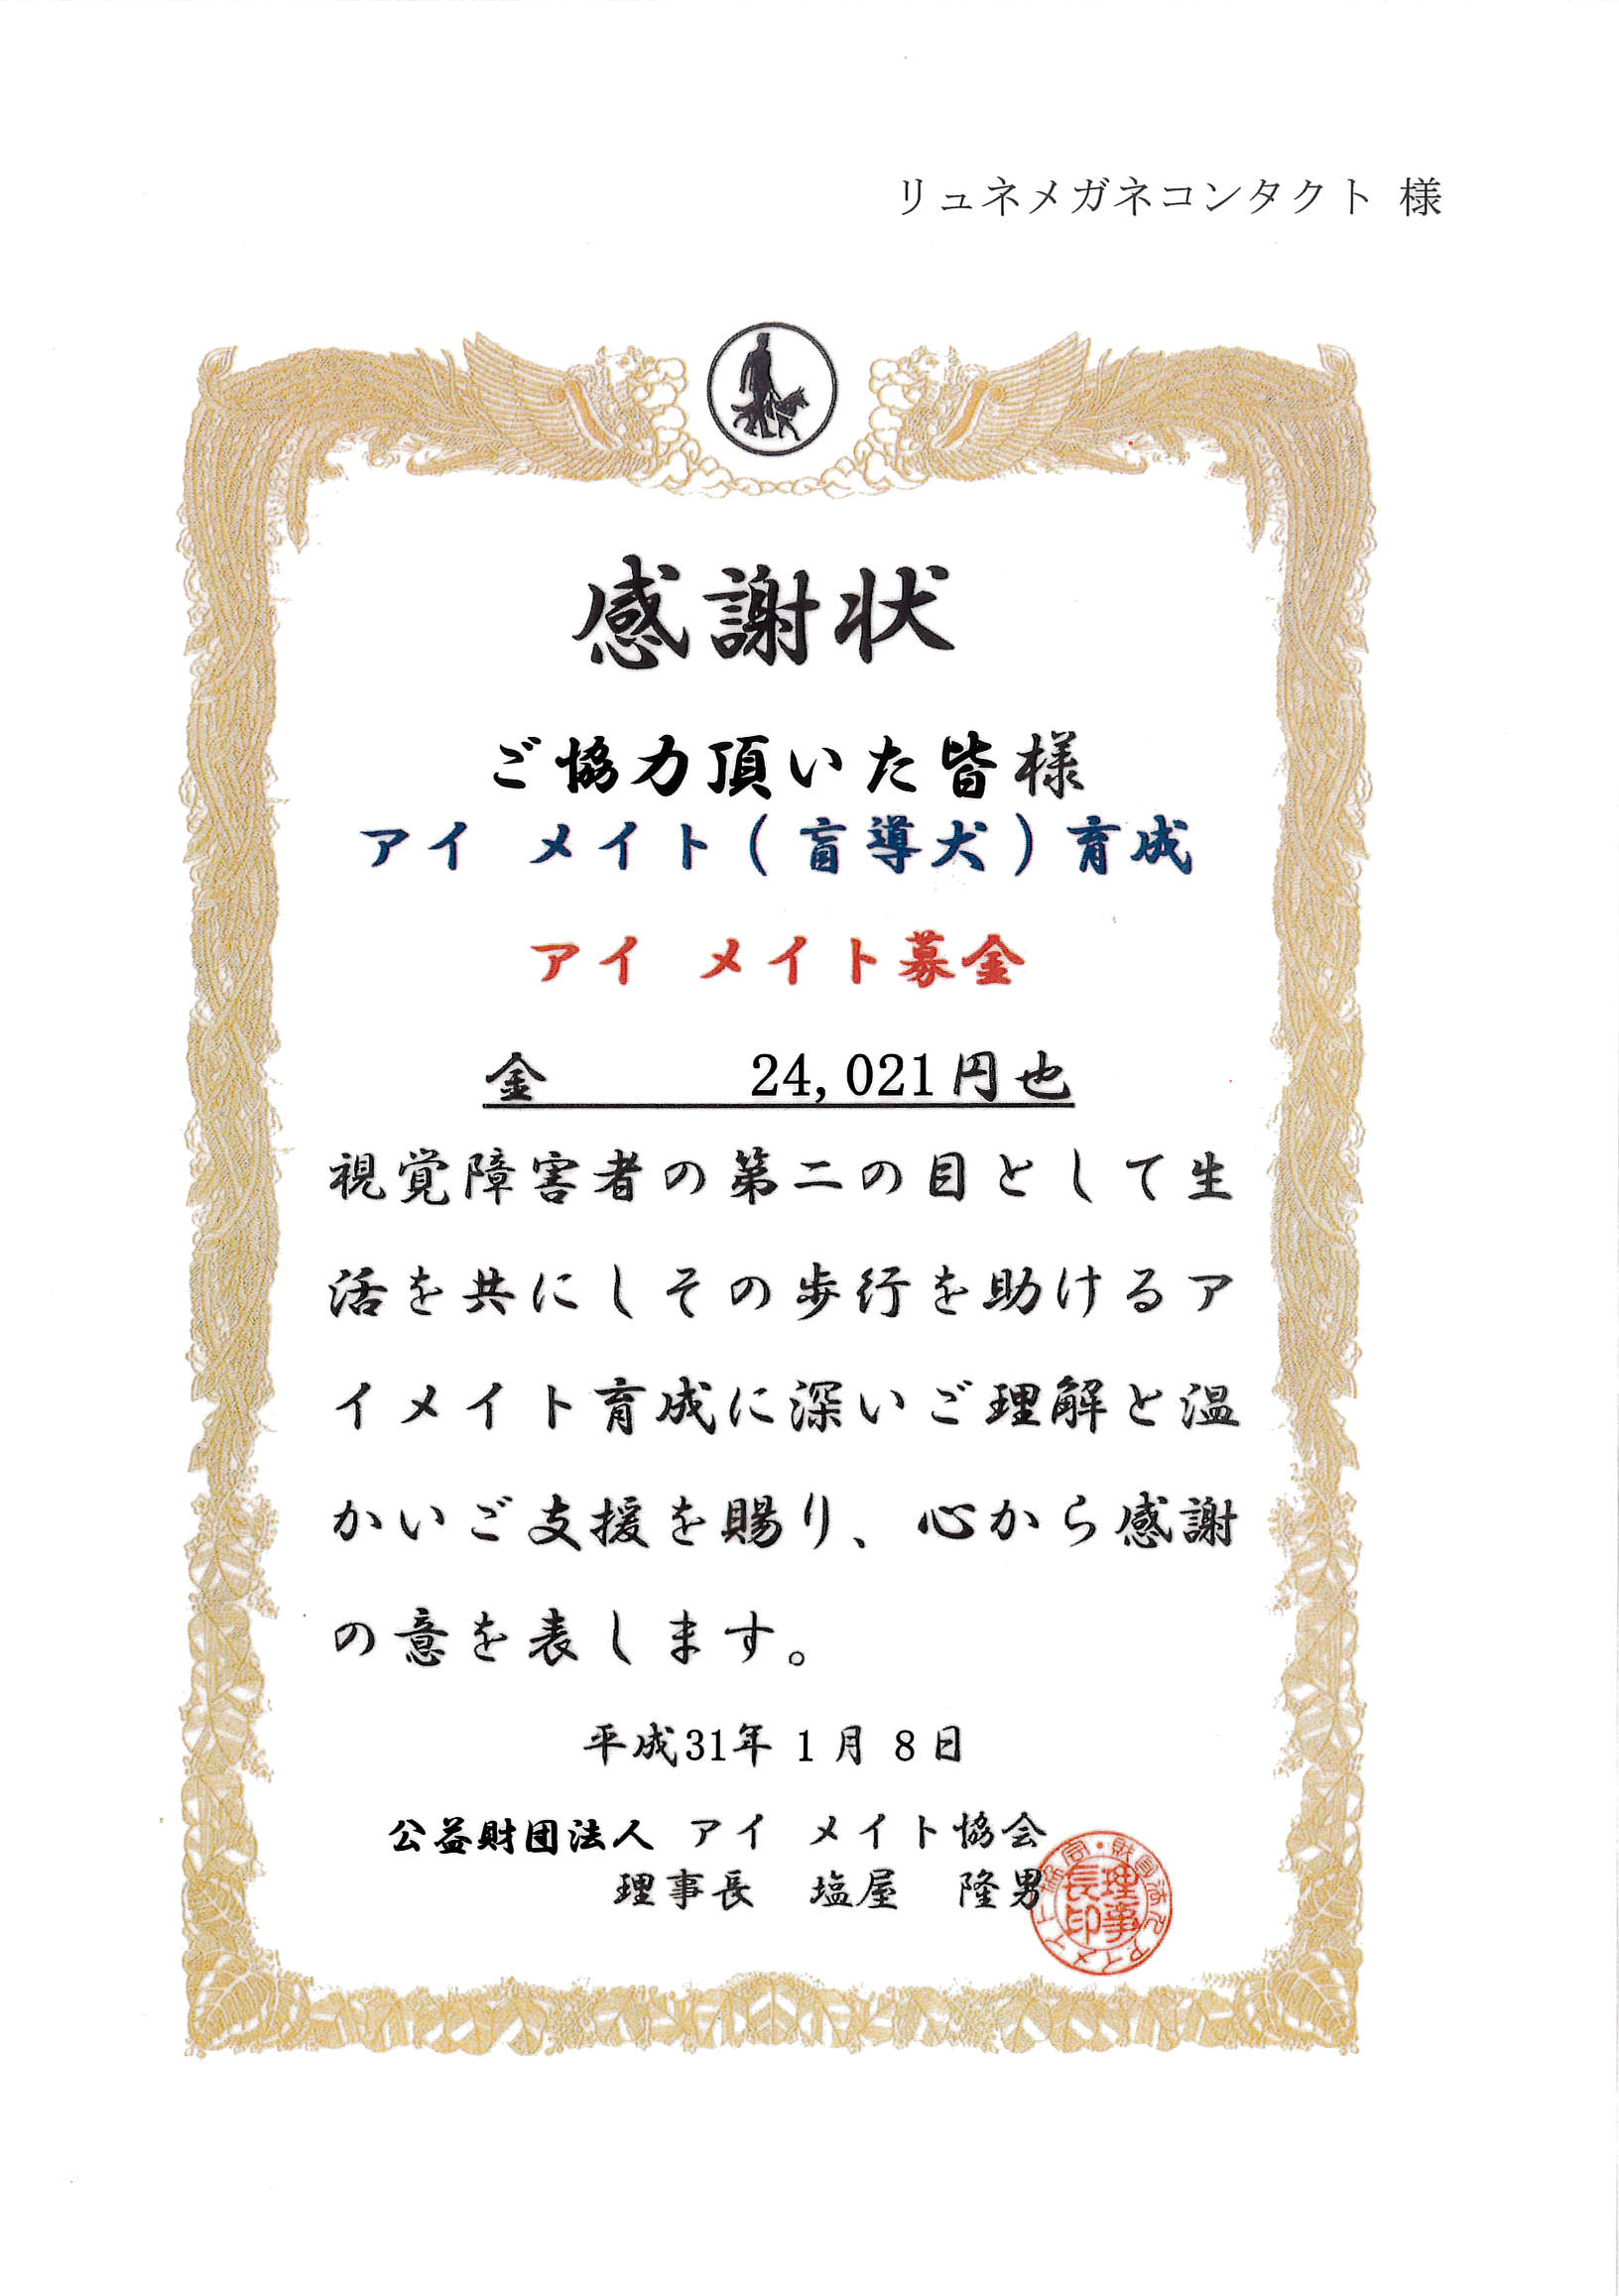 リュネメガネコンタクト 様
感謝状
ご協力頂いた皆様
アイ メイト(盲導犬)育成
アイ メイト募金
金 24,021円也
視覚障害者の第二の目として生
活を共にしその歩行を助けるア
イメイト育成に深いご理解と温
かいご支援を賜り、心から感謝
の意を表します。
平成31年 1月 8日
公益財団法人 アイ メイト協会
理事長 塩屋 隆男
理事長印